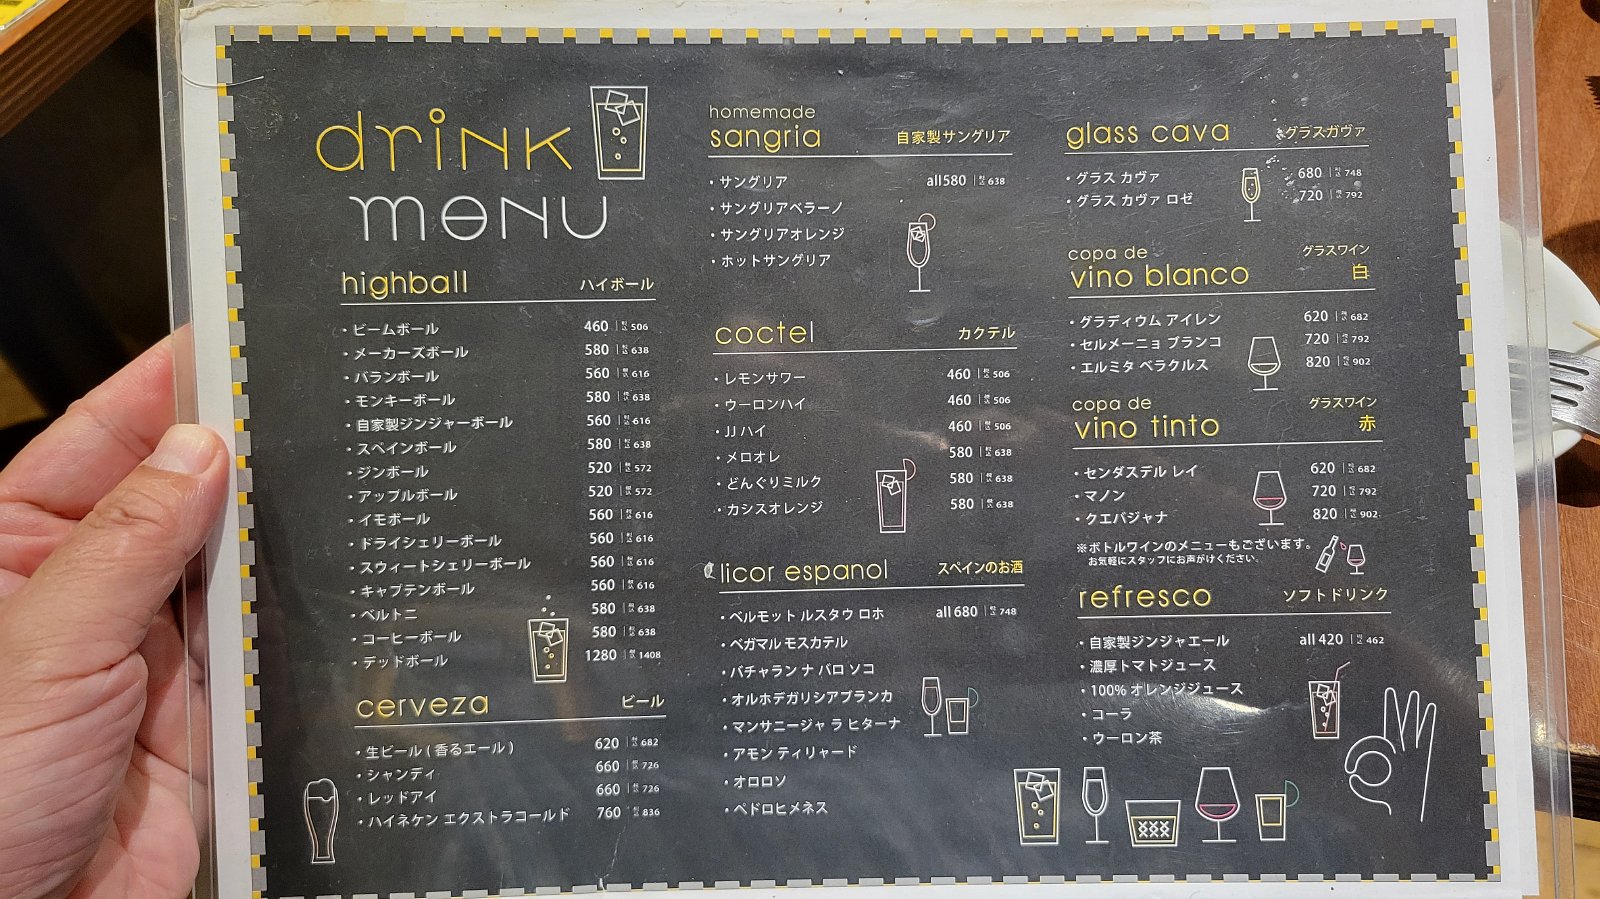 drink
menu
highball ハイボール
・ビームボール 460 税込 506
・メーカーズボール 580 税込 638
・バランボール 560 税込 616
・モンキーボール 580 税込 638
・自家製ジンジャーボール 560 税込 616
・スペインボール 580 税込 638
・ジンボール 520 税込 572
・アップルボール 520 税込 572
・イモボール 560 税込 616
・ドライシェリーボール 560 税込 616
・スウィートシェリーボール 560 税込 616
・キャプテンボール 560 税込 616
・ベルトニ 580 税込 638
・コーヒーボール 580 税込 638
・デッドボール 1280 税込 1408
cerveza ビール
・生ビール ( 香るエール ) 620 税込 682
・シャンディ 660 税込 726
・レッドアイ 660 税込 726
・ハイネケン エクストラコールド 760 税込 836
homemade
sangria 自家製サングリア
・サングリア all580 税込 638
・サングリアベラーノ
・サングリアオレンジ
・ホットサングリア
coctel カクテル
・レモンサワー 460 税込 506
・ウーロンハイ 460 税込 506
・JJ ハイ 460 税込 506
・メロオレ 580 税込 638
・どんぐりミルク 580 税込 638
・カシスオレンジ 580 税込 638
licor espanol スペインのお酒
・ベルモット ルスタウ ロホ all 680 税込 748
・ベガマル モスカテル
・パチャラン ナ バロ ソコ
・オルホデガリシアブランカ
・マンサニージャ ラ ヒターナ
・アモン ティリャード
・オロロソ
・ペドロヒメネス
glass cava グラスガヴァ
・グラス カヴァ 680 税込 748
・グラス カヴァ ロゼ 720 税込 792
copa de グラスワイン
vino blanco 白
・グラディウム アイレン 620 税込 682
・セルメーニョ ブランコ 720 税込 792
・エルミタ ベラクルス 820 税込 902
copa de グラスワイン
vino tinto 赤
・センダスデル レイ 620 税込 682
・マノン 720 税込 792
・クエバジャナ 820 税込 902
※ボトルワインのメニューもございます。
お気軽にスタッフにお声がけください。
refresco ソフトドリンク
・自家製ジンジャエール all 420 税込 462
・濃厚トマトジュース
・100% オレンジジュース
・コーラ
・ウーロン茶